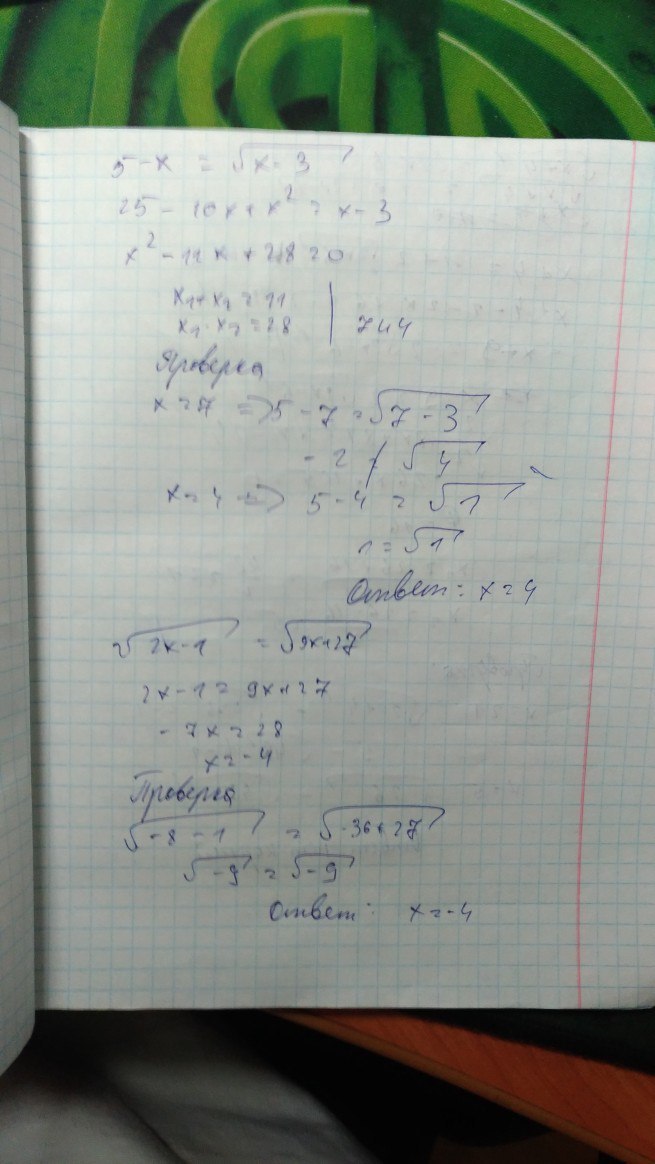 5 - x = √x - 3
25 - 10x + x² = x - 3
x² - 11x + 28 = 0
x₁ + x₂ = 11
x₁ · x₂ = 28 | 7 и 4
Проверка
x = 7 => 5 - 7 = √7 - 3
- 2 ≠ √4
x = 4 => 5 - 4 = √1
1 = √1
Ответ: x = 4
√2x - 1 = √9x + 27
2x - 1 = 9x + 27
- 7x = 28
x = -4
Проверка
√-8 - 1 = √-36 + 27
√-9 = √-9
Ответ: x = -4